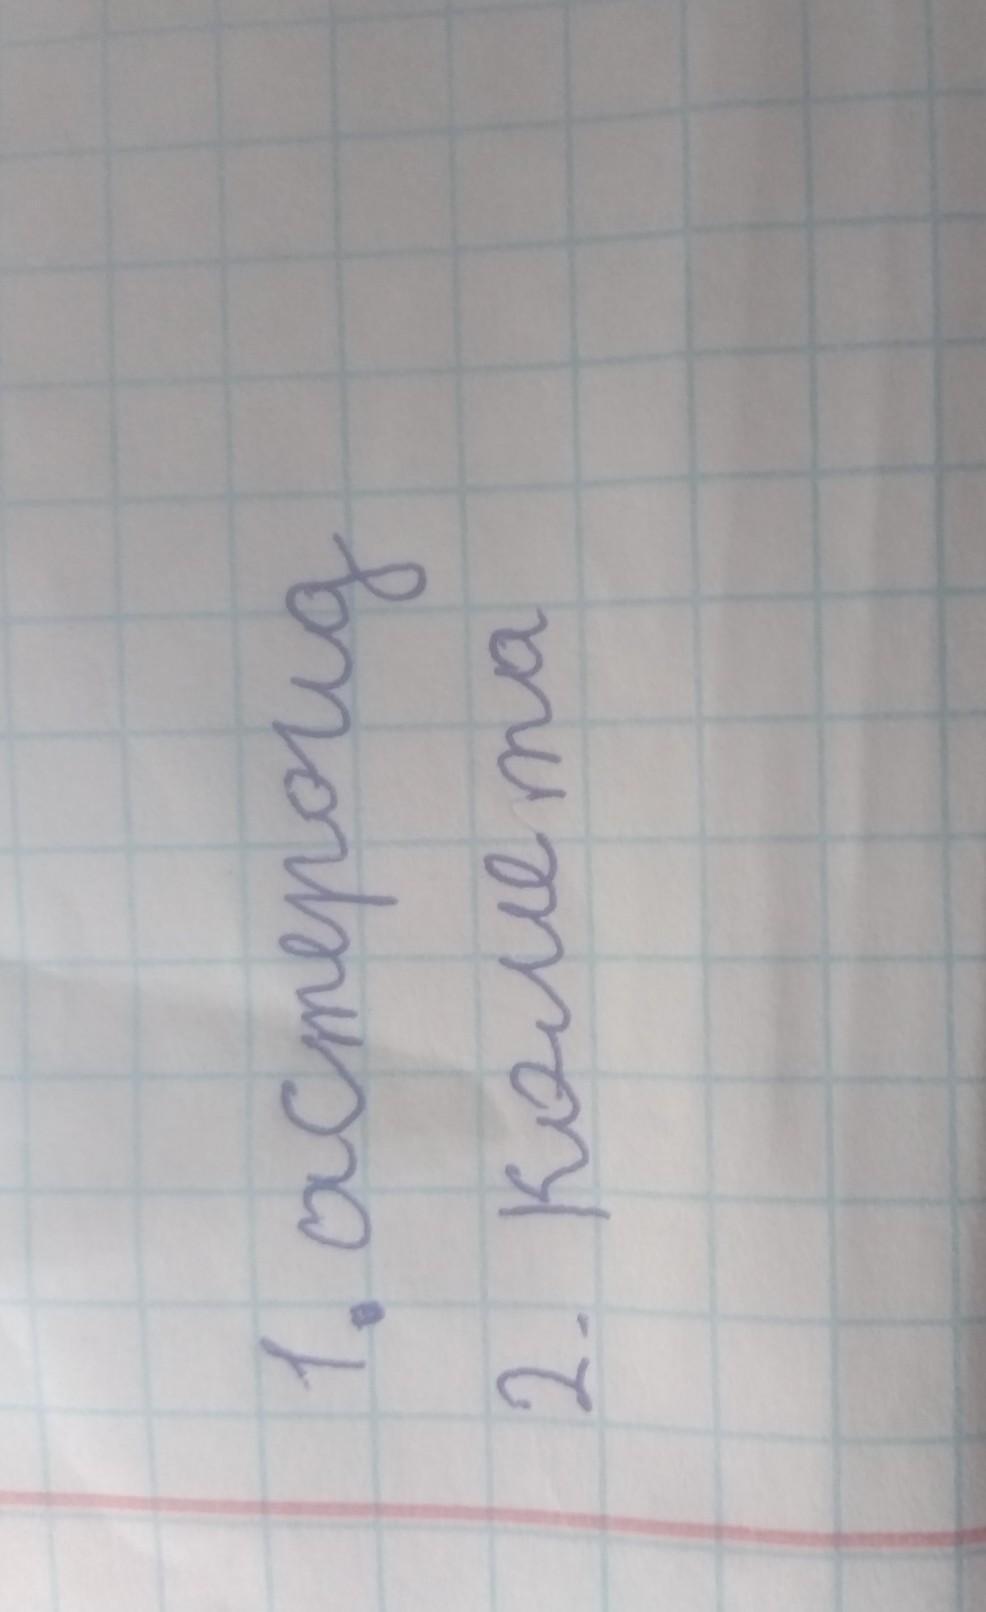 1. астероид
2. Комета